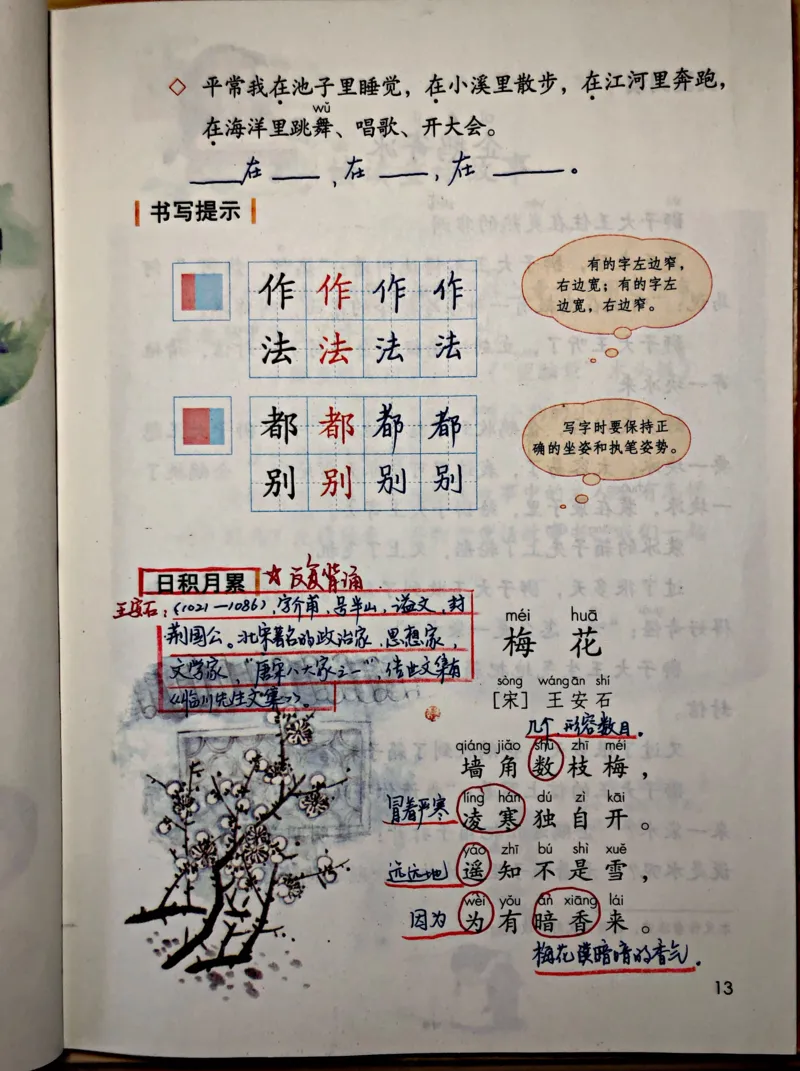 ◇ 平常我在池子里睡觉，在小溪里散步，在江河里奔跑，
wǔ
在海洋里跳舞、唱歌、开大会。
____在____，在____，在____。
书写提示
作 作 作 作
法 法 法 法
有的字左边窄，
右边宽；有的字左
边宽，右边窄。
都 都 都 都
别 别 别 别
写字时要保持正
确的坐姿和执笔姿势。
日积月累 ☆反复背诵
王安石：(1021—1086)，字介甫，号半山，谥文，封
荆国公。北宋著名的政治家，思想家，
文学家，“唐宋八大家之一”，传世文集有
《临川先生文集》。
méi huā
梅花
sòng wáng ān shí
［宋］王安石
几个 形容数目。
qiáng jiǎo shù zhī méi
墙角数枝梅，
líng hán dú zì kāi
冒着严寒 凌寒独自开。
yáo zhī bú shì xuě
远远地 遥知不是雪，
wèi yǒu àn xiāng lái
因为 为有暗香来。
梅花 暗暗的香气。
13